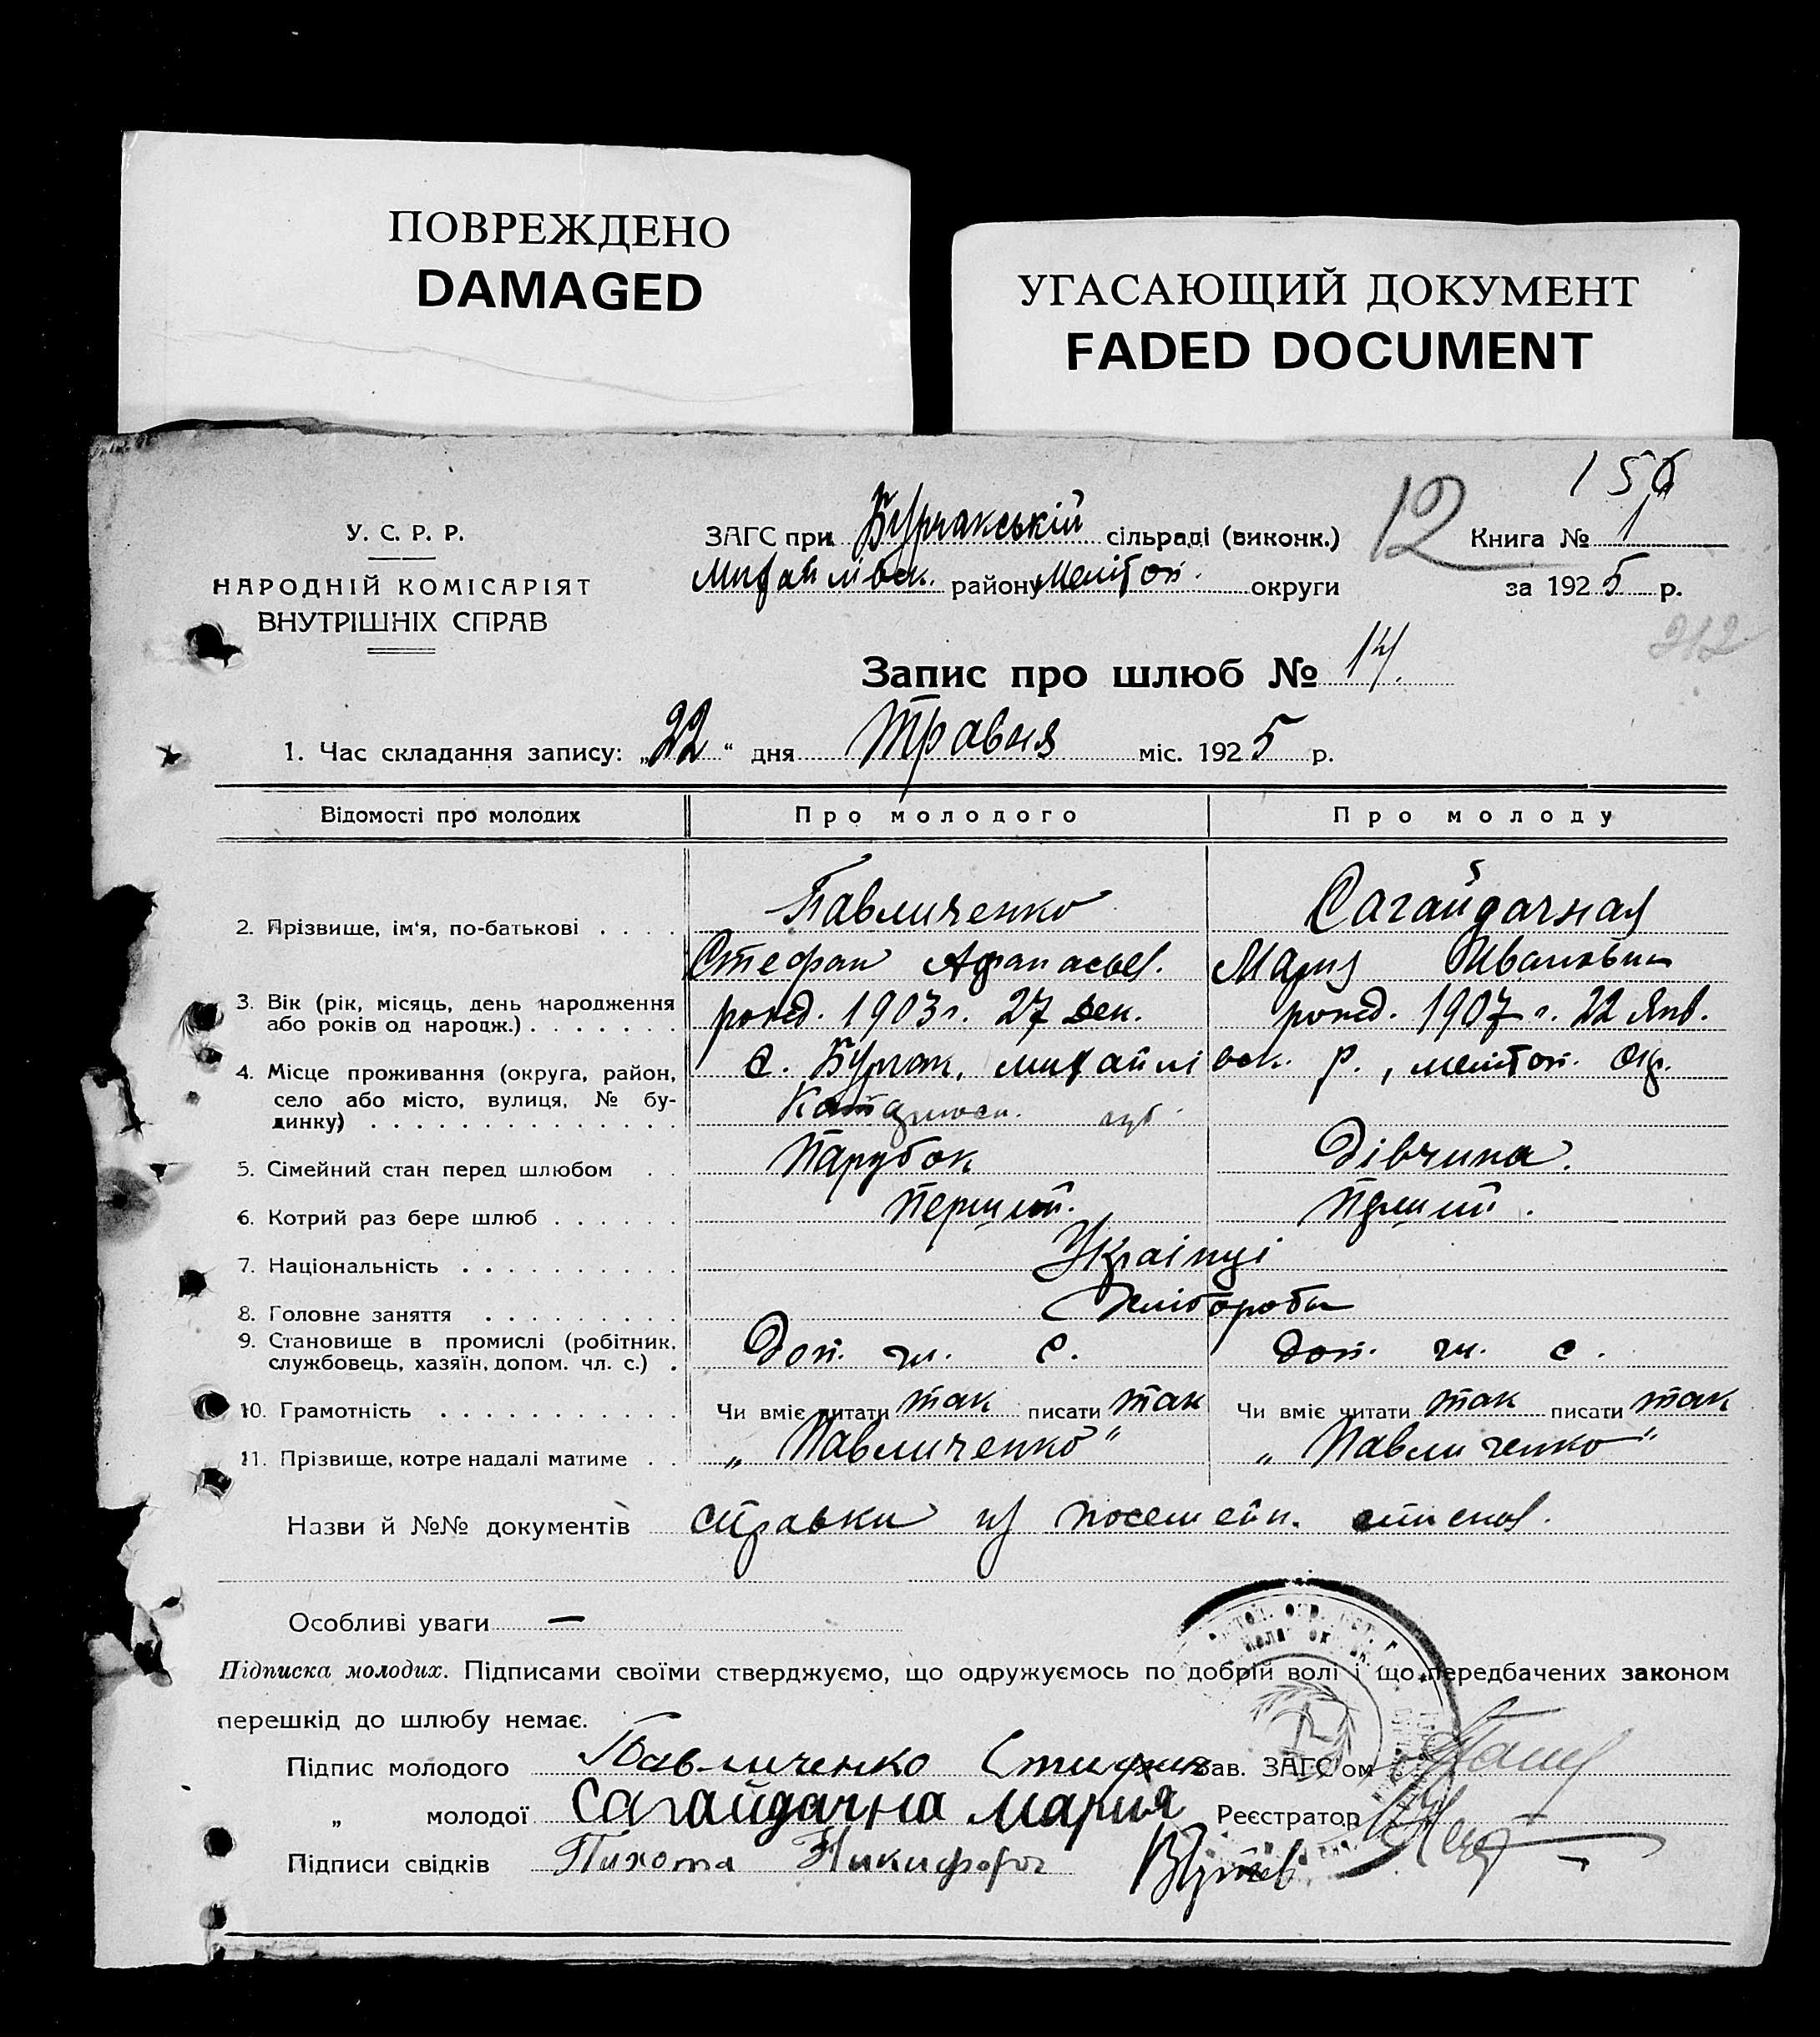 ПОВРЕЖДЕНО
DAMAGED
УГАСАЮЩИЙ ДОКУМЕНТ
FADED DOCUMENT
У. С. Р. Р.
НАРОДНІЙ КОМІСАРІЯТ
ВНУТРІШНІХ СПРАВ
ЗАГС при Бурчакській сільраді (виконк.)
Михайлівск. району Меліtoп. округи
12
15
Книга № 1
за 1925 р.
212
Запис про шлюб № 14.
1. Час складання запису: „22“ дня Травня міс. 1925 р.
Відомості про молодих Про молодого Про молоду
2. Прізвище, ім'я, по-батькові . . . . Павличенко Сагайдачная
Стефан Афанасьев. Мария Ивановна
3. Вік (рік, місяць, день народження або років од народж.) . . . . . . . рожд. 1903 г. 27 Дек. рожд. 1907 г. 22 Янв.
4. Місце проживання (округа, район, село або місто, вулиця, № будинку) . . . . . . . . . . . . . . с. Бурчак, михайлівск. р., меліtoп. окр.
губ.
5. Сімейний стан перед шлюбом . . Парубок Дівчина.
6. Котрий раз бере шлюб . . . . . . Перший. Перший.
7. Національність . . . . . . . . . . Українці
8. Головне заняття . . . . . . . . . Хлібороби
9. Становище в промислі (робітник, службовець, хазяїн, допом. чл. с.) . Доп. чл. с. Доп. чл. с.
10. Грамотність . . . . . . . . . . . Чи вміє читати так писати так Чи вміє читати так писати так
11. Прізвище, котре надалі матиме . . „Павличенко“ „Павличенко“
Назви й №№ документів справки из посемейн. списков.
Особливі уваги —
Підписка молодих. Підписами своїми стверджуємо, що одружуємось по добрій волі і що передбачених законом
перешкід до шлюбу немає.
Підпис молодого Павличенко Стифан Зав. ЗАГС'ом
„ молодої Сагайдачна Мария Реєстратор
Підписи свідків Пихота Никифор